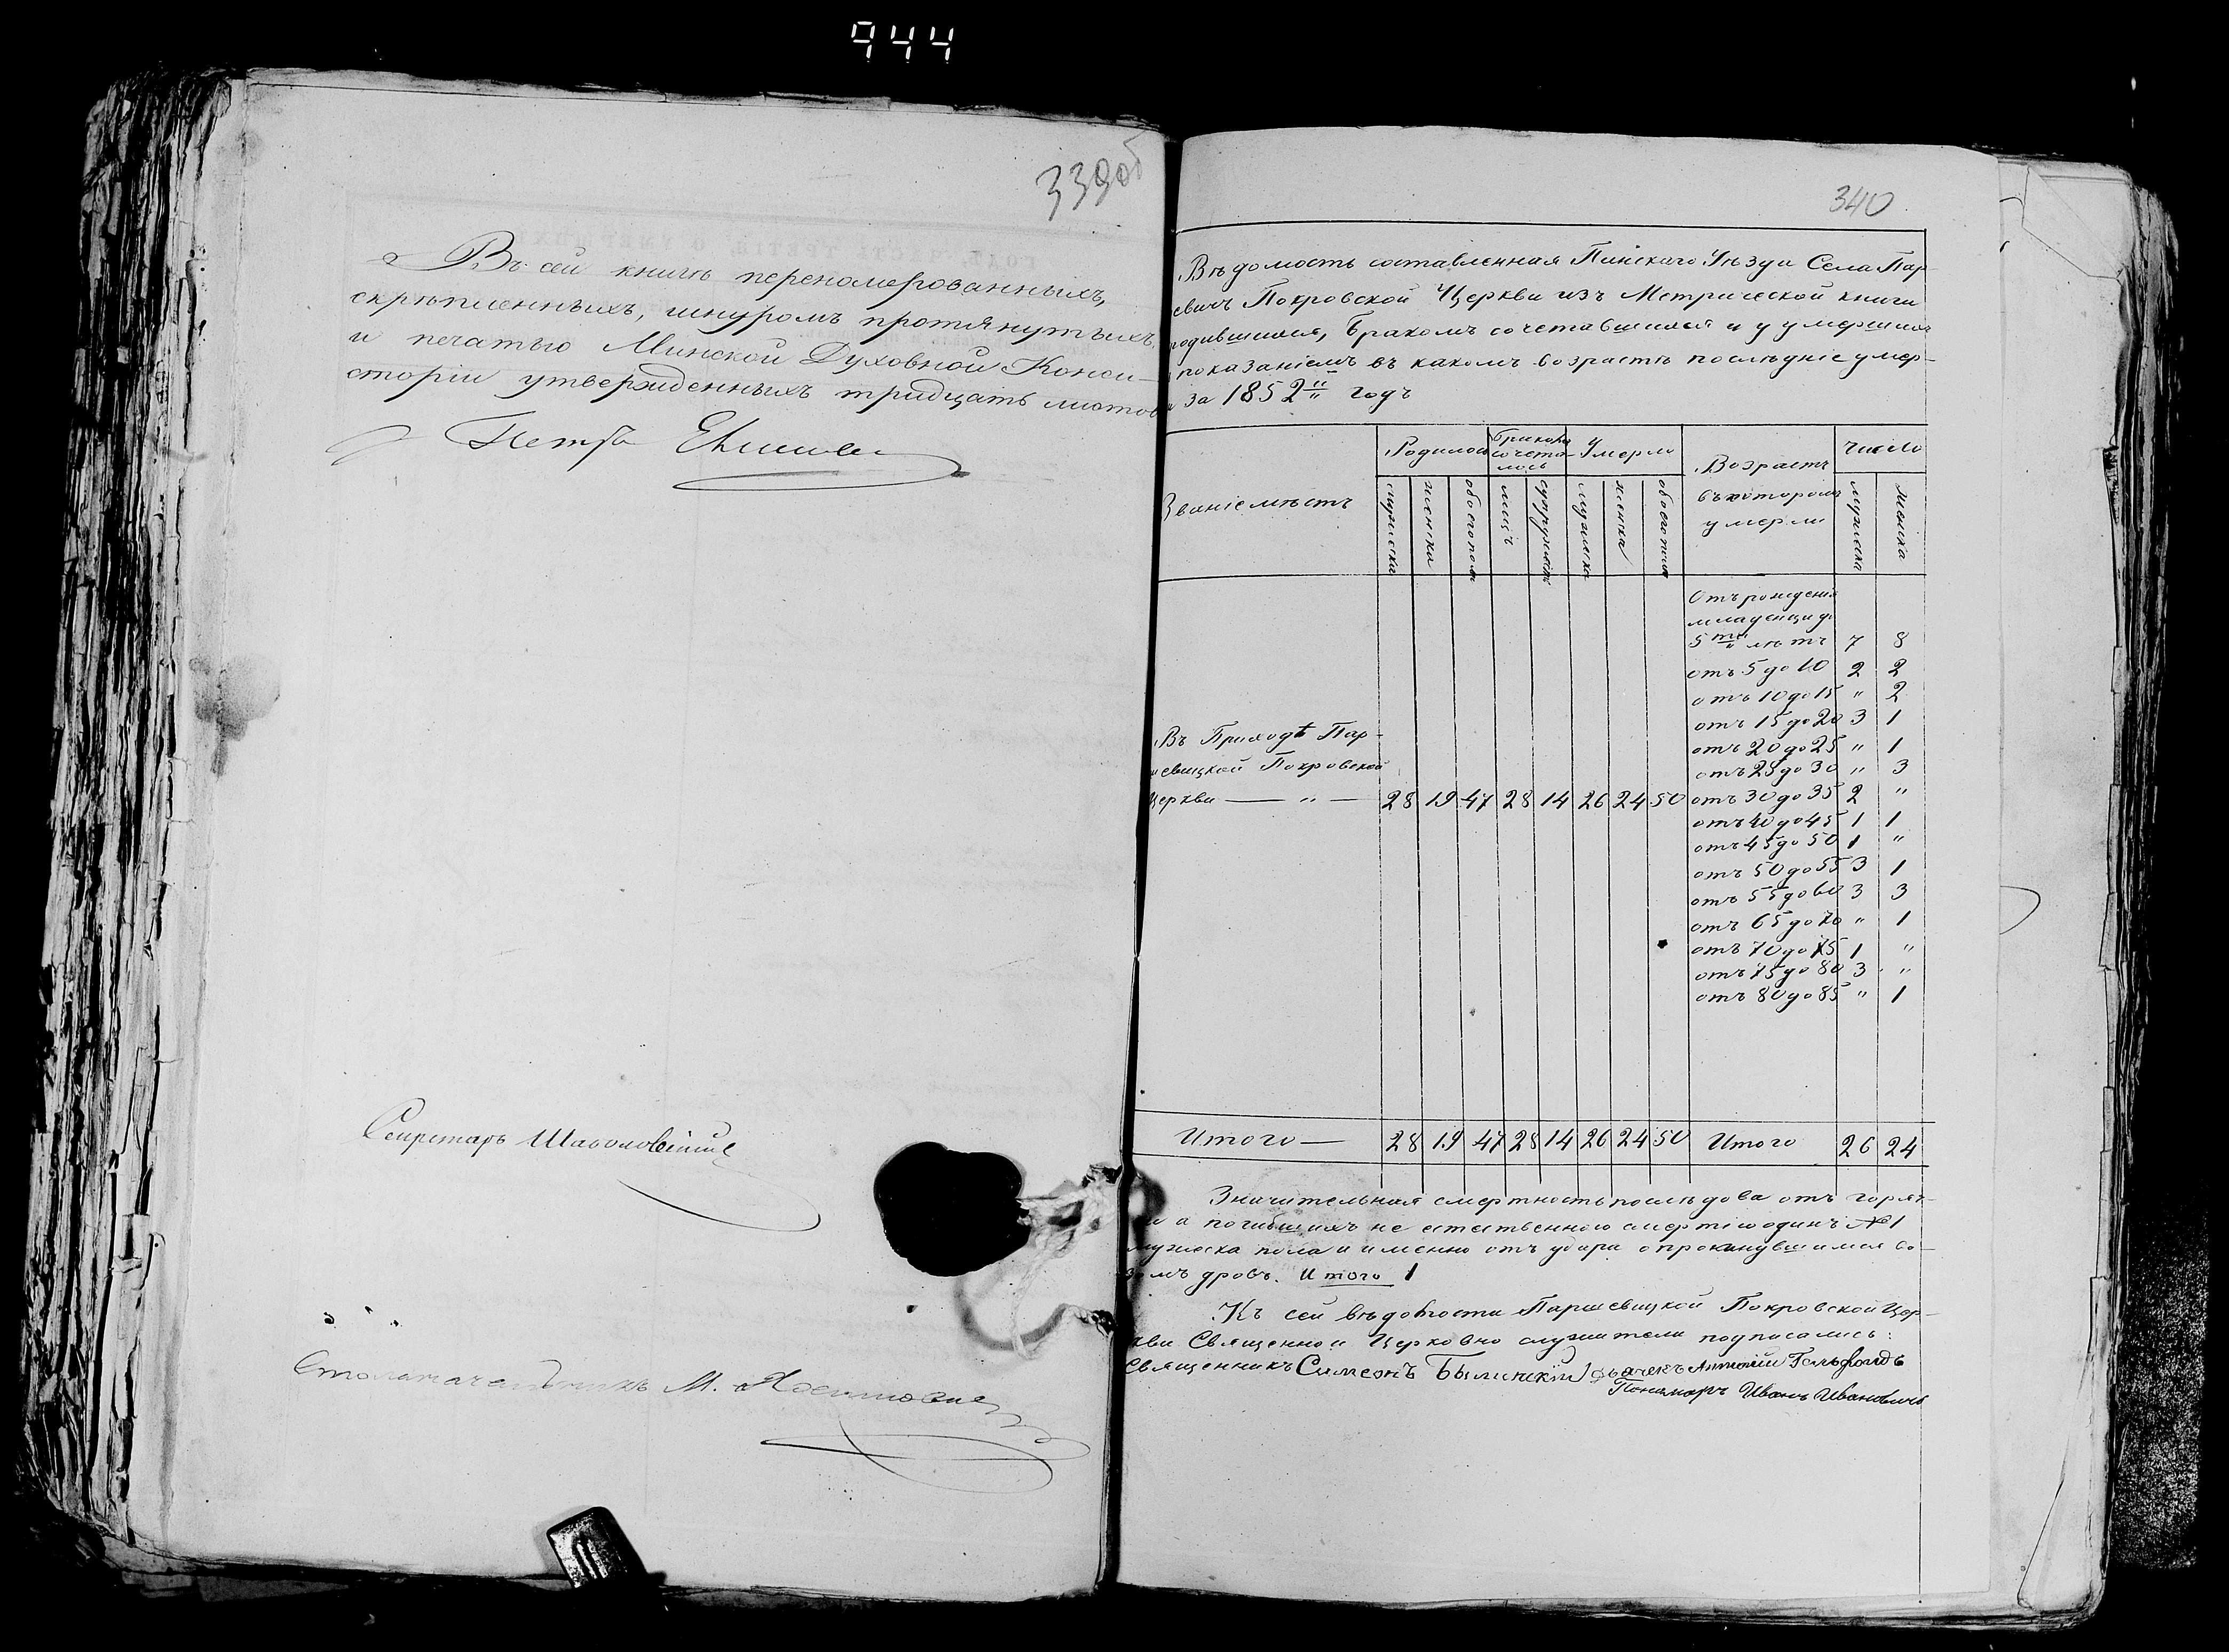 944
339об
Въ сей книгѣ перенумерованныхъ,
скрѣпленныхъ, шнуромъ протянутыхъ
и печатью Минской Духовной Конси-
сторіи утвержденныхъ тридцать листовъ
Петръ
Секретарь
Столоначальникъ М.
340
Вѣдомость составленная Пинскаго Уѣзда Села Пар-
евичъ Покровской Церкви изъ Метрической книги
родившихся, бракомъ сочетавшихся и у умершихъ
показаніемъ въ какомъ возрастѣ послѣдніе умер-
за 1852 годъ
Званіе мѣстъ
Родилось
Бракомъ сочета-лось
Умерло
Возрастъ въ которомъ умерли
Число
мужеска
женска
обоего пола
лицъ
супружествъ
мужеска
женска
обоего пола
мужеска
женска
Отъ рожденія
младенца до
5ти лѣтъ 7 8
отъ 5 до 10 2 2
отъ 10 до 15 " 2
отъ 15 до 20 3 1
отъ 20 до 25 " 1
отъ 25 до 30 " 3
Въ Приходѣ Пар-
шевицкой Покровской
Церкви — " — 28 19 47 28 14 26 24 50 отъ 30 до 35 2 "
отъ 40 до 45 1 1
отъ 45 до 50 1 "
отъ 50 до 55 3 1
отъ 55 до 60 3 3
отъ 65 до 70 " 1
отъ 70 до 75 1 "
отъ 75 до 80 3 "
отъ 80 до 85 " 1
Итого — 28 19 47 28 14 26 24 50 Итого 26 24
Значительная смертность послѣдова отъ горяч-
а погибшихъ не естественною смертію одинъ №1
мужеска пола и именно отъ удара опрокинувшимся во-
зомъ дровъ. Итого 1
Къ сей вѣдомости Паршевицкой Покровской Цер-
кви Священно и Церковно служители подписались:
Священникъ Симеонъ Былинскій Дьячекъ Антоній
Пономарь Иванъ Ивановичъ